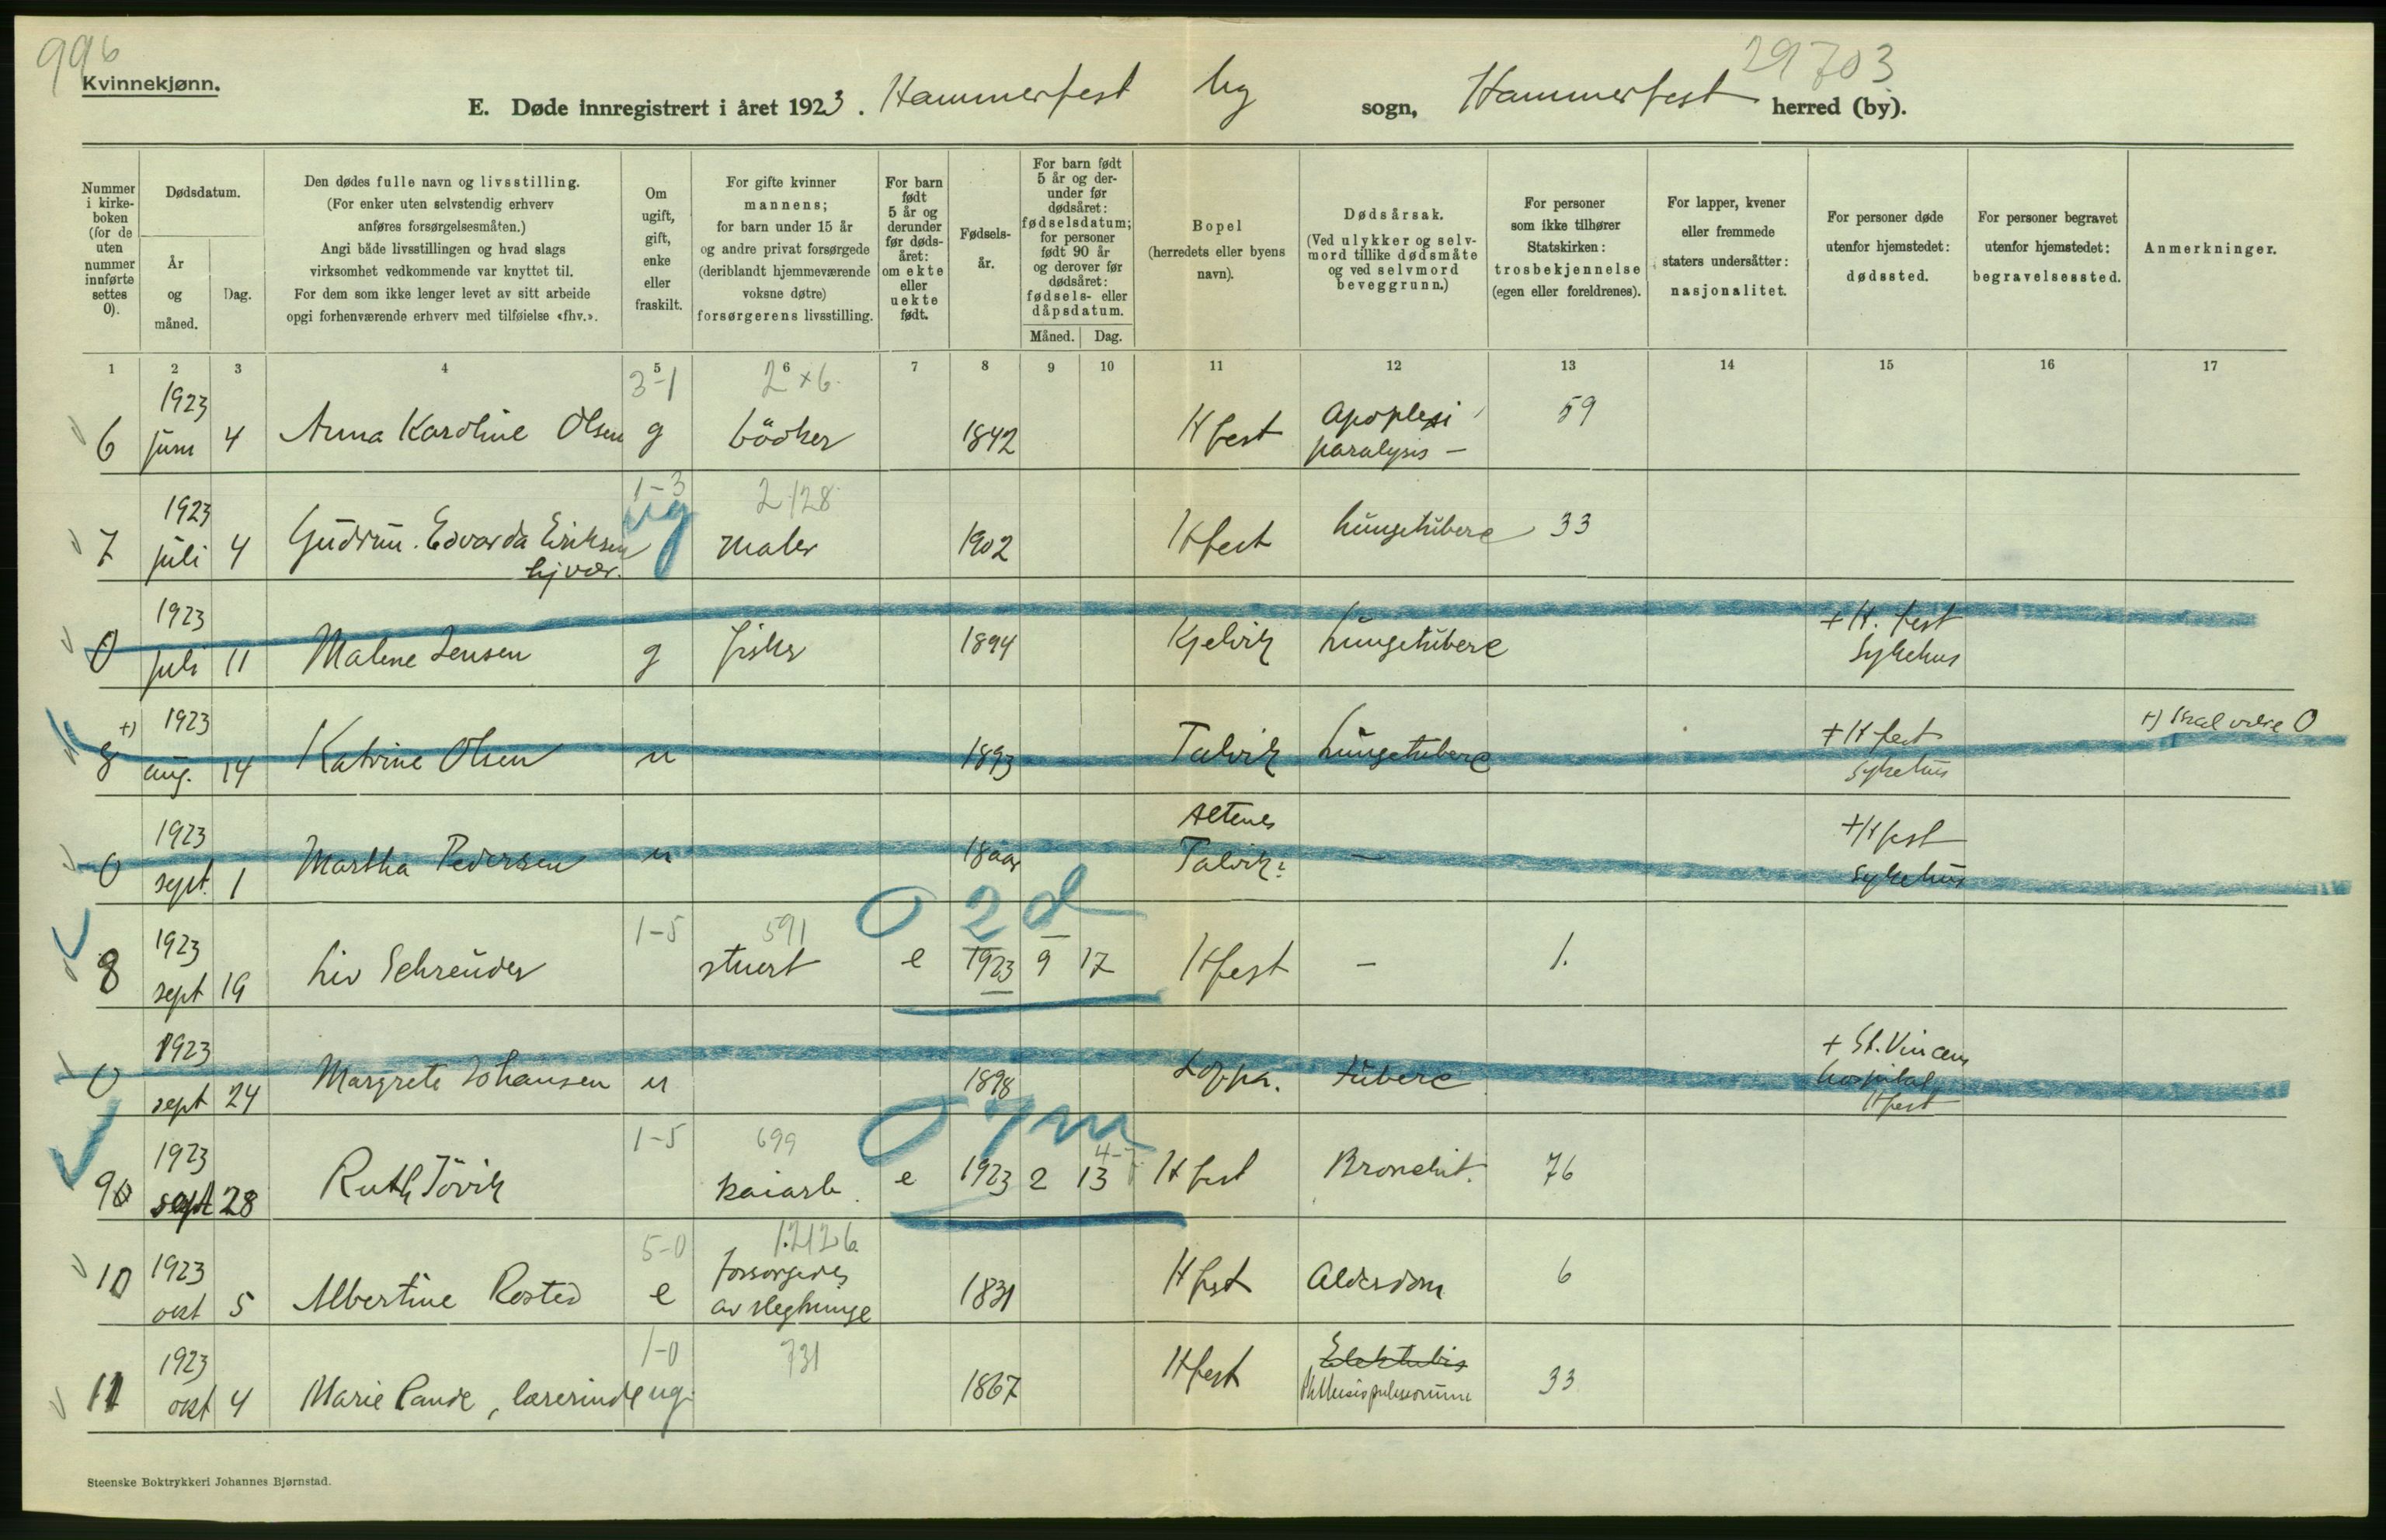 996
29703
Kvinnekjønn.
E. Døde innregistrert i året 1923. Hammerfest by sogn, Hammerfest herred (by).
Nummer i kirke-boken (for de uten nummer innførte settes 0).
Dødsdatum.
År og måned.
Dag.
Den dødes fulle navn og livsstilling.
(For enker uten selvstendig erhverv
anføres forsørgelsesmåten.)
Angi både livsstillingen og hvad slags
virksomhet vedkommende var knyttet til.
For dem som ikke lenger levet av sitt arbeide
opgi forhenværende erhverv med tilføielse «fhv.».
Om
ugift,
gift,
enke
eller
fraskilt.
For gifte kvinner
mannens;
for barn under 15 år
og andre privat forsørgede
(deriblandt hjemmeværende
voksne døtre)
forsørgerens livsstilling.
For barn
født
5 år og
derunder
før døds-
året:
om ekte
eller
uekte
født.
Fødsels-
år.
For barn født
5 år og der-
under før
dødsåret:
fødselsdatum;
for personer
født 90 år
og derover før
dødsåret:
fødsels- eller
dåpsdatum.
Måned. Dag.
Bopel
(herredets eller byens
navn).
Dødsårsak.
(Ved ulykker og selv-
mord tillike dødsmåte
og ved selvmord
beveggrunn.)
For personer
som ikke tilhører
Statskirken:
trosbekjennelse
(egen eller foreldrenes).
For lapper, kvener
eller fremmede
staters undersåtter:
nasjonalitet.
For personer døde
utenfor hjemstedet:
dødssted.
For personer begravet
utenfor hjemstedet:
begravelsessted.
Anmerkninger.
1 2 3 4 5 6 7 8 9 10 11 12 13 14 15 16 17
3-1 2 × 6
6 1923 juni 4 Anna Karoline Olsen g bödker 1842 Hfest Apoplexi paralysis – 59
1-3 2128
7 1923 juli 4 Gudrun. Edvarda Eriksen hj vær. ug maler 1902 Hfest Lungetuberc 33
0 1923 juli 11 Malene Jensen g fisker 1894 Kjelvik Lungetuberc + H. fest Sykehus
8 +) 1923 aug. 14 Katrine Olsen u 1893 Talvik Lungetuberc + Hfest Sykehus +) skal være 0
0 1923 sept. 1 Martha Pedersen u 18 aar Altenes Talvik: – + Hfest Sykehus
0 2 d
1-5 591
8 1923 sept 19 Liv Schreuder stuert e 1923 9 17 Hfest – 1.
0 1923 sept 24 Margrete Johansen u 1898 Loppa. tuberc + St. Vincens hospital Hfest
0 7 m
1-5 699 4-7
9 1923 sept 28 Ruth Tövik kaiarb. e 1923 2 13 Hfest Bronchit. 76
5-0 1.2126
10 1923 okt 5 Albertine Rosted e forsørgedes av slegtninge 1831 Hfest Alderdom 6
1-0 731
11 1923 okt 4 Marie Rande, lærerinde ug. 1867 Hfest Phthisis pulmonum 33
Steenske Boktrykkeri Johannes Bjørnstad.